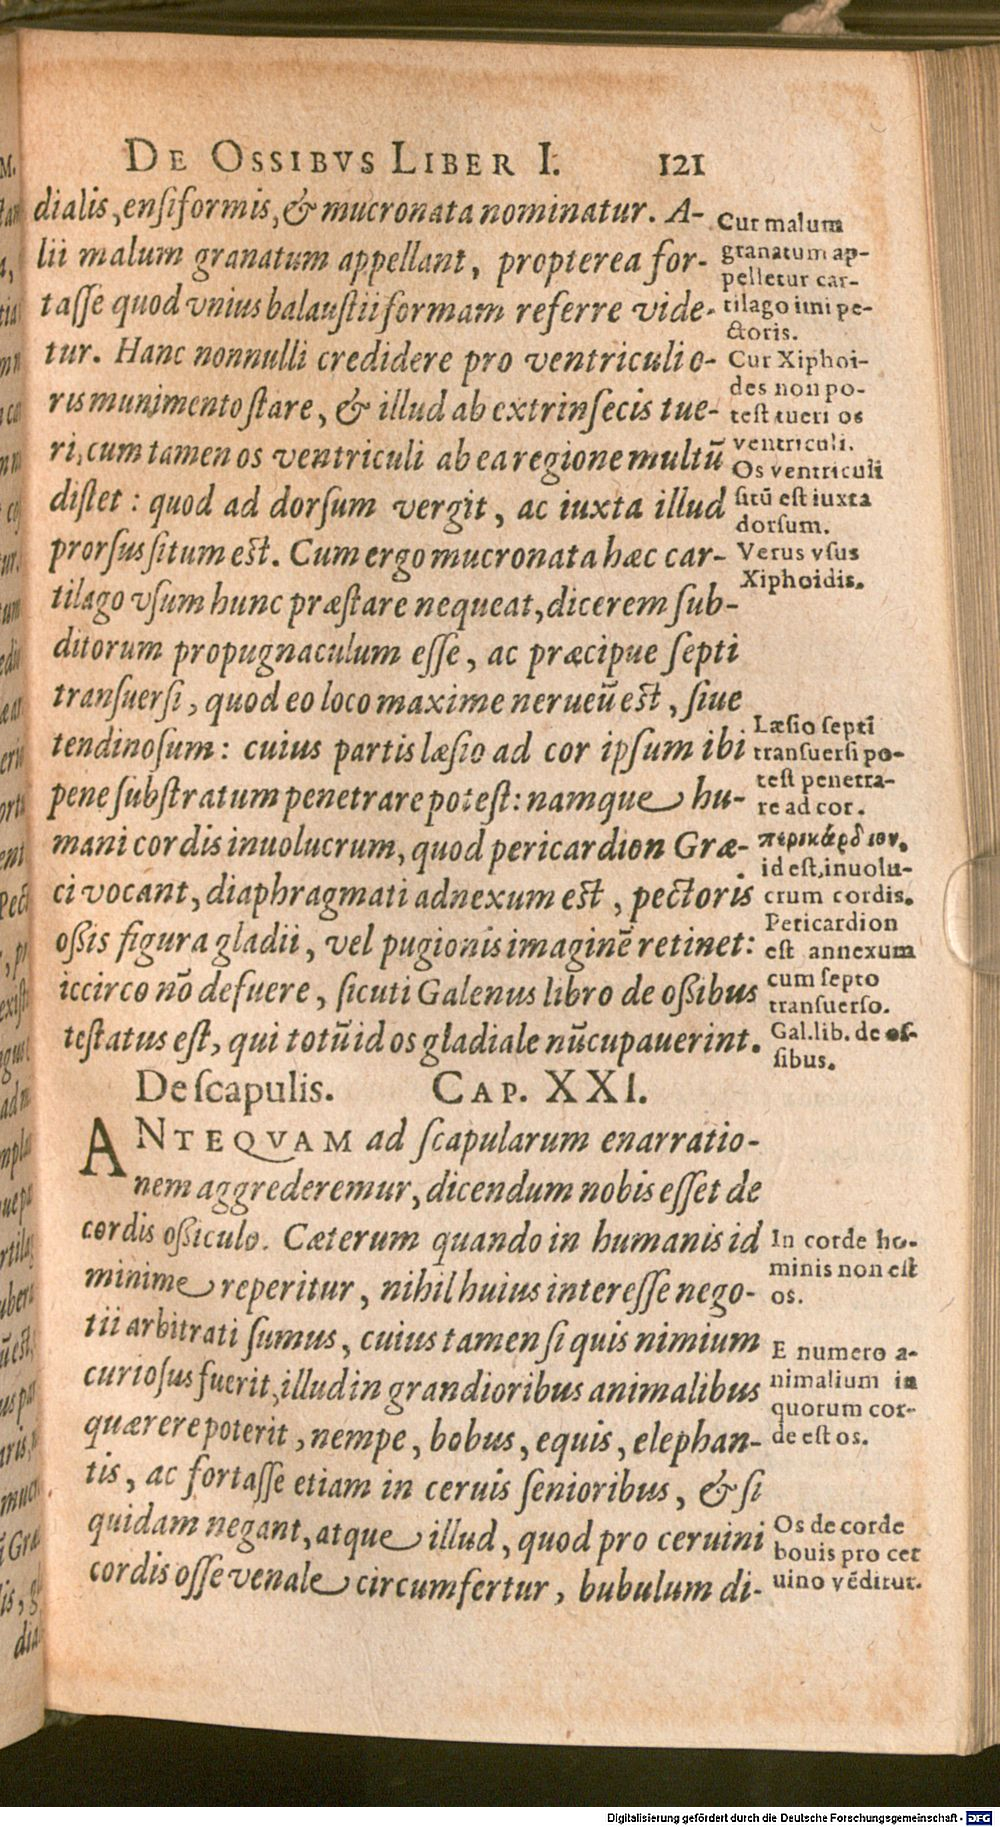 DE OSSIBVS LIBER I. 121
dialis, ensiformis, & mucronata nominatur. A-
lii malum granatum appellant, propterea for-
tasse quod vnius balaustii formam referre vide-
tur. Hanc nonnulli credidere pro ventriculi o-
ris munimento stare, & illud ab extrinsecis tue-
ri, cum tamen os ventriculi ab ea regione multū
distet: quod ad dorsum vergit, ac iuxta illud
prorsus situm est. Cum ergo mucronata hæc car-
tilago vsum hunc præstare nequeat, dicerem sub-
ditorum propugnaculum esse, ac præcipue septi
transuersi, quod eo loco maxime nerueū est, siue
tendinosum: cuius partis læsio ad cor ipsum ibi
pene substratum penetrare potest: namque hu-
mani cordis inuolucrum, quod pericardion Græ-
ci vocant, diaphragmati adnexum est, pectoris
ossis figura gladii, vel pugionis imaginē retinet:
iccirco nō defuere, sicuti Galenus libro de ossibus
testatus est, qui totū id os gladiale nūcupauerint.
Cur malum
granatum ap-
pelletur car-
tilago imi pe-
ctoris.
Cur Xiphoi-
des non po-
test tueri os
ventriculi.
Os ventriculi
sitū est iuxta
dorsum.
Verus vsus
Xiphoidis.
Læsio septi
transuersi po-
test penetra-
re ad cor.
περικάρδιον,
id est, inuolu-
crum cordis.
Pericardion
est annexum
cum septo
transuerso.
Gal. lib. de os-
sibus.
De scapulis. CAP. XXI.
ANTEQVAM ad scapularum enarratio-
nem aggrederemur, dicendum nobis esset de
cordis ossiculo. Cæterum quando in humanis id
minime reperitur, nihil huius interesse nego-
tii arbitrati sumus, cuius tamen si quis nimium
curiosus fuerit, illud in grandioribus animalibus
quærere poterit, nempe, bobus, equis, elephan-
tis, ac fortasse etiam in ceruis senioribus, & si
quidam negant, atque illud, quod pro ceruini
cordis osse venale circumfertur, bubulum di-
In corde ho-
minis non est
os.
E numero a-
nimalium in
quorum cor-
de est os.
Os de corde
bouis pro cer
uino vēditur.
Digitalisierung gefördert durch die Deutsche Forschungsgemeinschaft - DFG